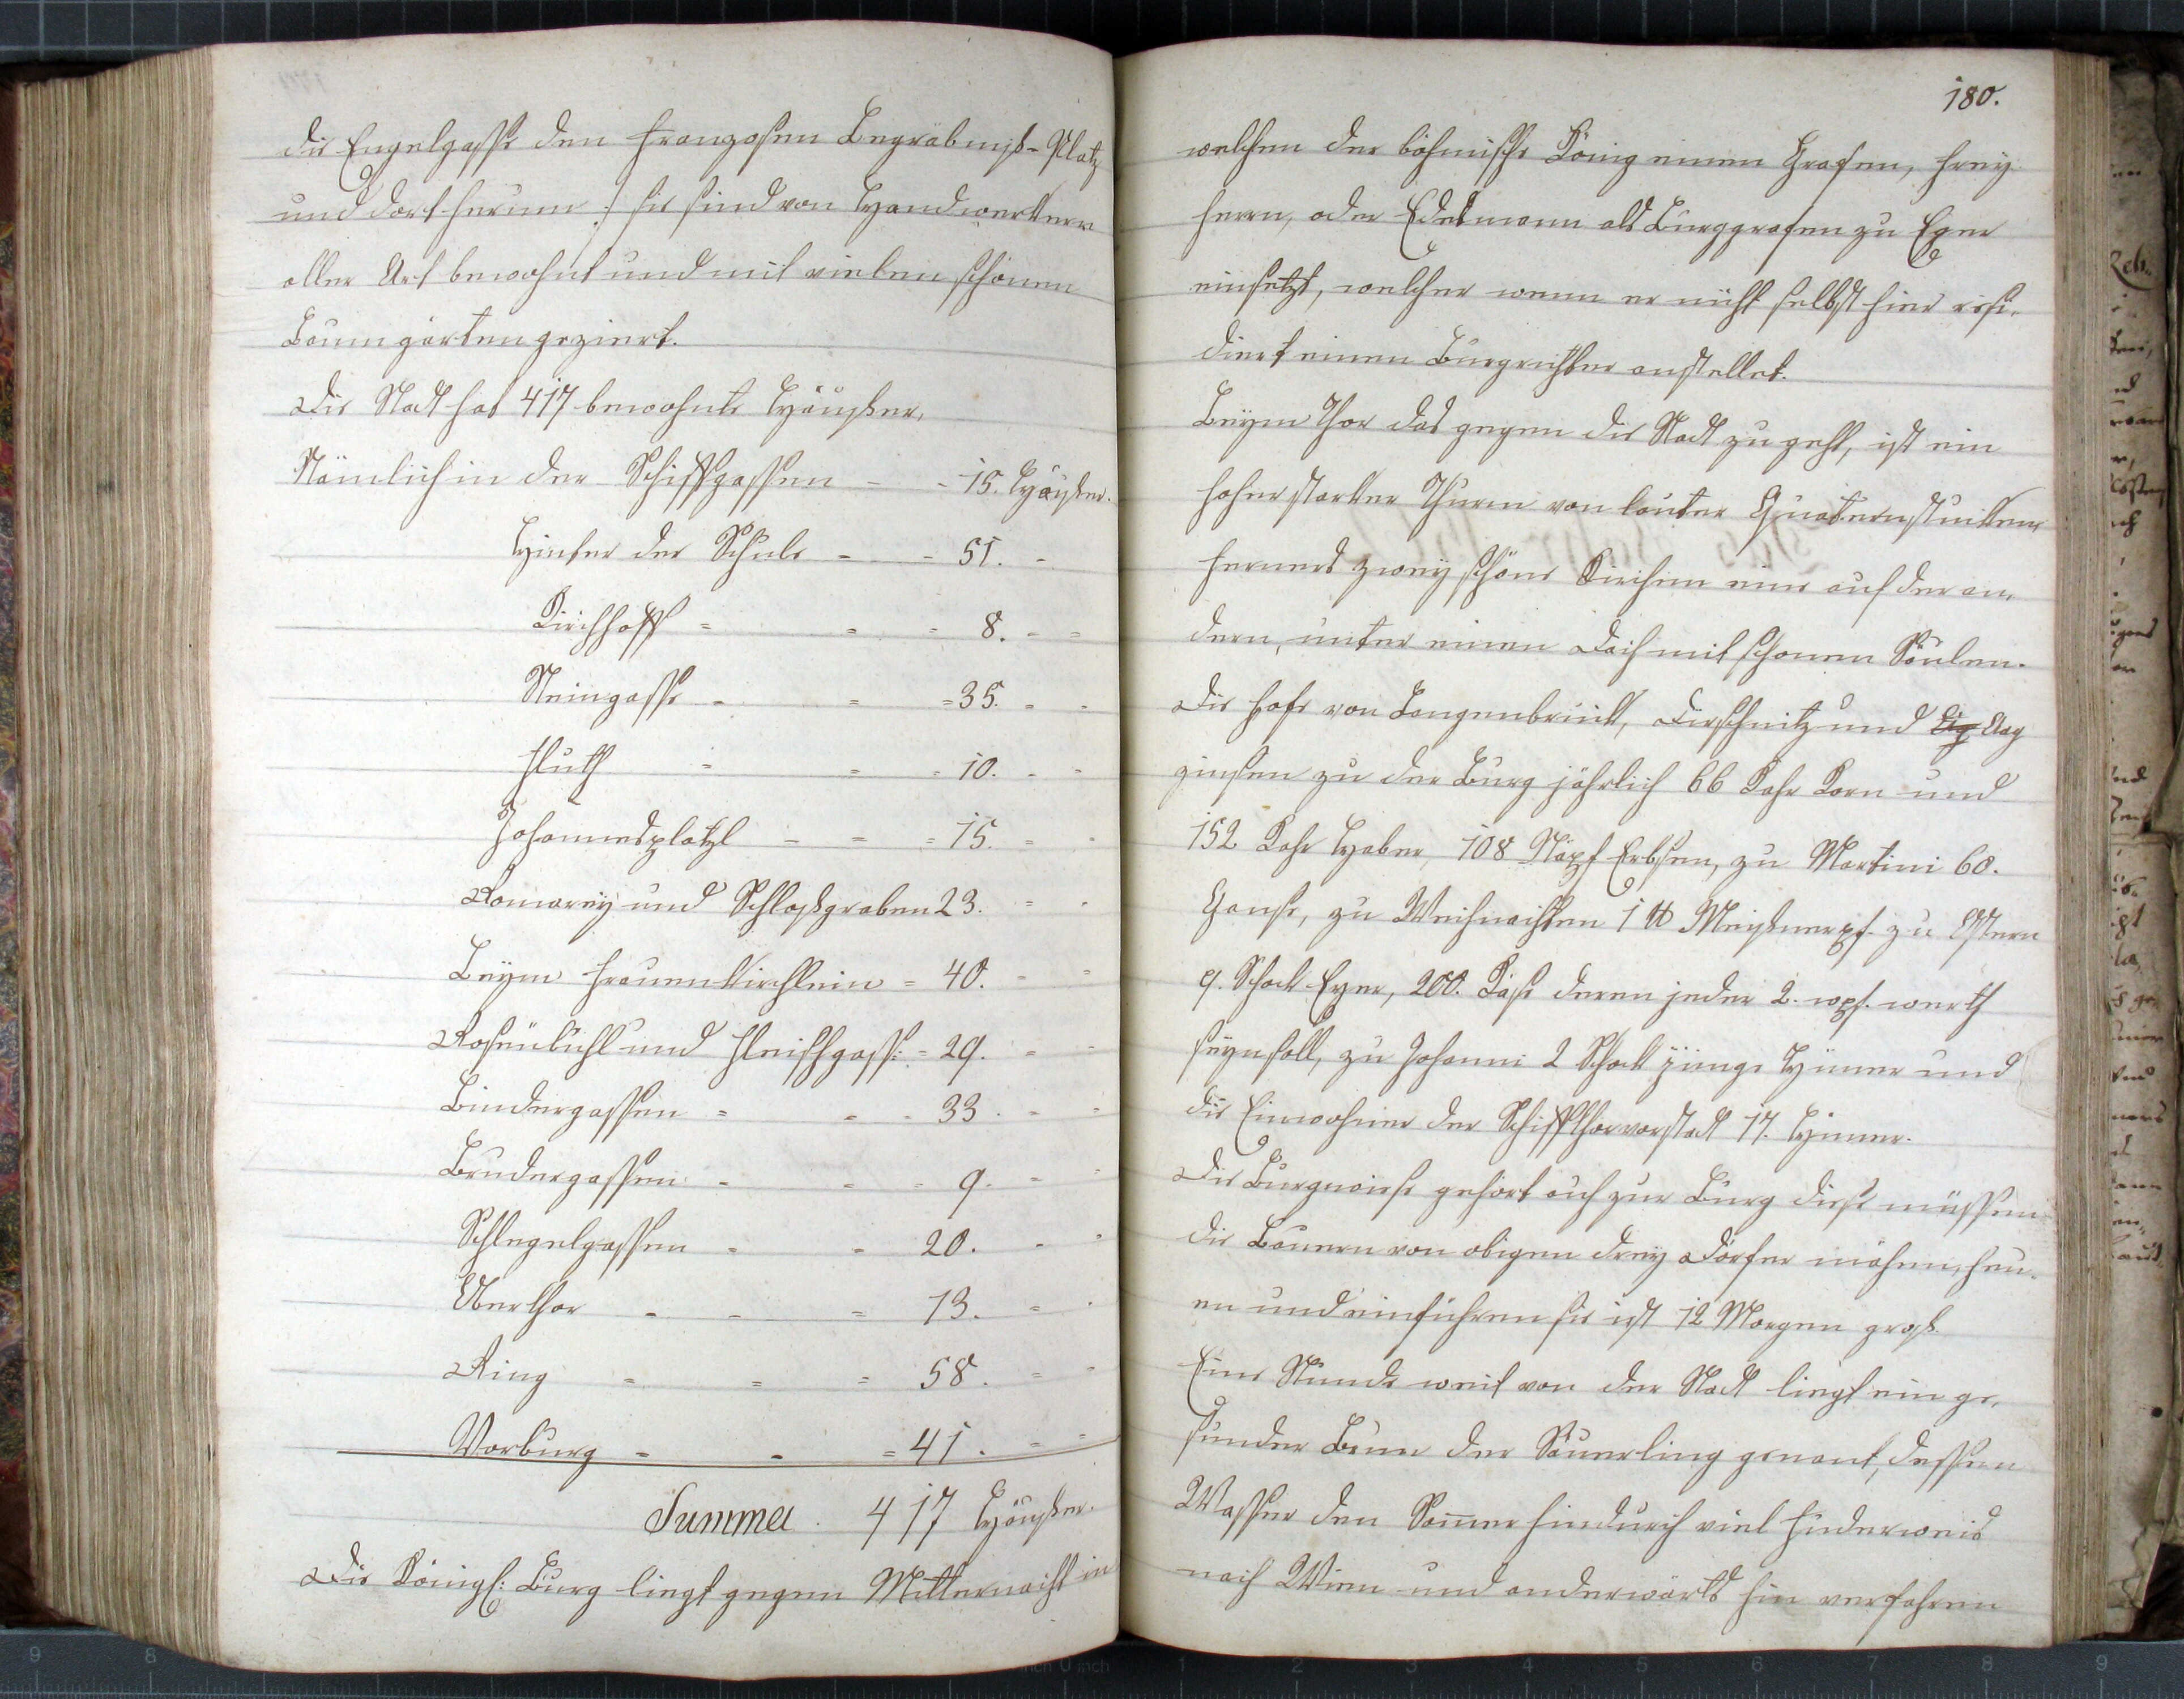 die Engelgasse den Franzosen Begräbniß-Platz
und dort herum :/ sie sind von Handwerkern
aller Art bewohnt und mit vielen schönen
Baumgärten geziert.
Die Stadt hat 417 bewohnte Häußer,
Nämlich in der Schiffgassen - - 15. Häußer.
Hinter der Schule - - 51. -
Kirchhoff = = = 8. - -
Steingasse - = = 35. - -
Fluth - = = 10. - -
Johannesplatzl - = = 15. - -
Romarey und Schloßgraben 23. = -
Beym Frauenkirchlein = 40. - -
Rosenbühl und Fleischgass: = 29. = -
Bindergassen = = - 33. - -
Brudergassen - = - 9. - -
Schlegelgassen = = 20. - -
Oberthor - - = 13. - -
Ring = = = 58. = -
Vorburg = - = 41. = -
Summa. 417 Häußer.
Die Königl: Burg liegt gegen Mitternacht in
180.
welchen der böhmische König einen Grafen, Frey
herrn, oder Edelmann als Burggrafen zu Eger
einsetzt, welcher wenn er nicht selbst hier resi-
diert einen Burgrichter anstellet.
Beym Thor das gegen die Stadt zu geht, ist ein
hoher starker Thurm von lauter Quaternstucken
ferners zwey schöne Kirchen eine auf der an-
dern, unter einen Dach mit schönen Säulen.
Die Hofe von Langenbruck, Dirschnitz und Aag
zinsen zu der Burg jährlich 66 Kahr Korn und
152 Kahr Haber, 108 Näpf Erbsen, zu Martini 60.
Gänse, zu Weihnachten 1 ℔ Meißnerpf. zu Ostern
9. Schock Eyer, 200. Käse deren jeder 2. wpf. werth
seyn soll, zu Johanni 2 Schock junge Hüner und
die Einwohner der Schiffthorvorstadt 17. Hüner.
Die Burgwiese gehört auch zur Burg diese müssen
die Bauern von obigen drey Dörfer mähen, heu-
en und einführen sie ist 12 Morgen groß.
Eine Stunde weit von der Stadt liegt ein ge-
sunder Brun der Säuerling genant, dessen
Wasser den Sommer hindurch viel Fuderweis
nach Wien und anderwärts hin verfahren